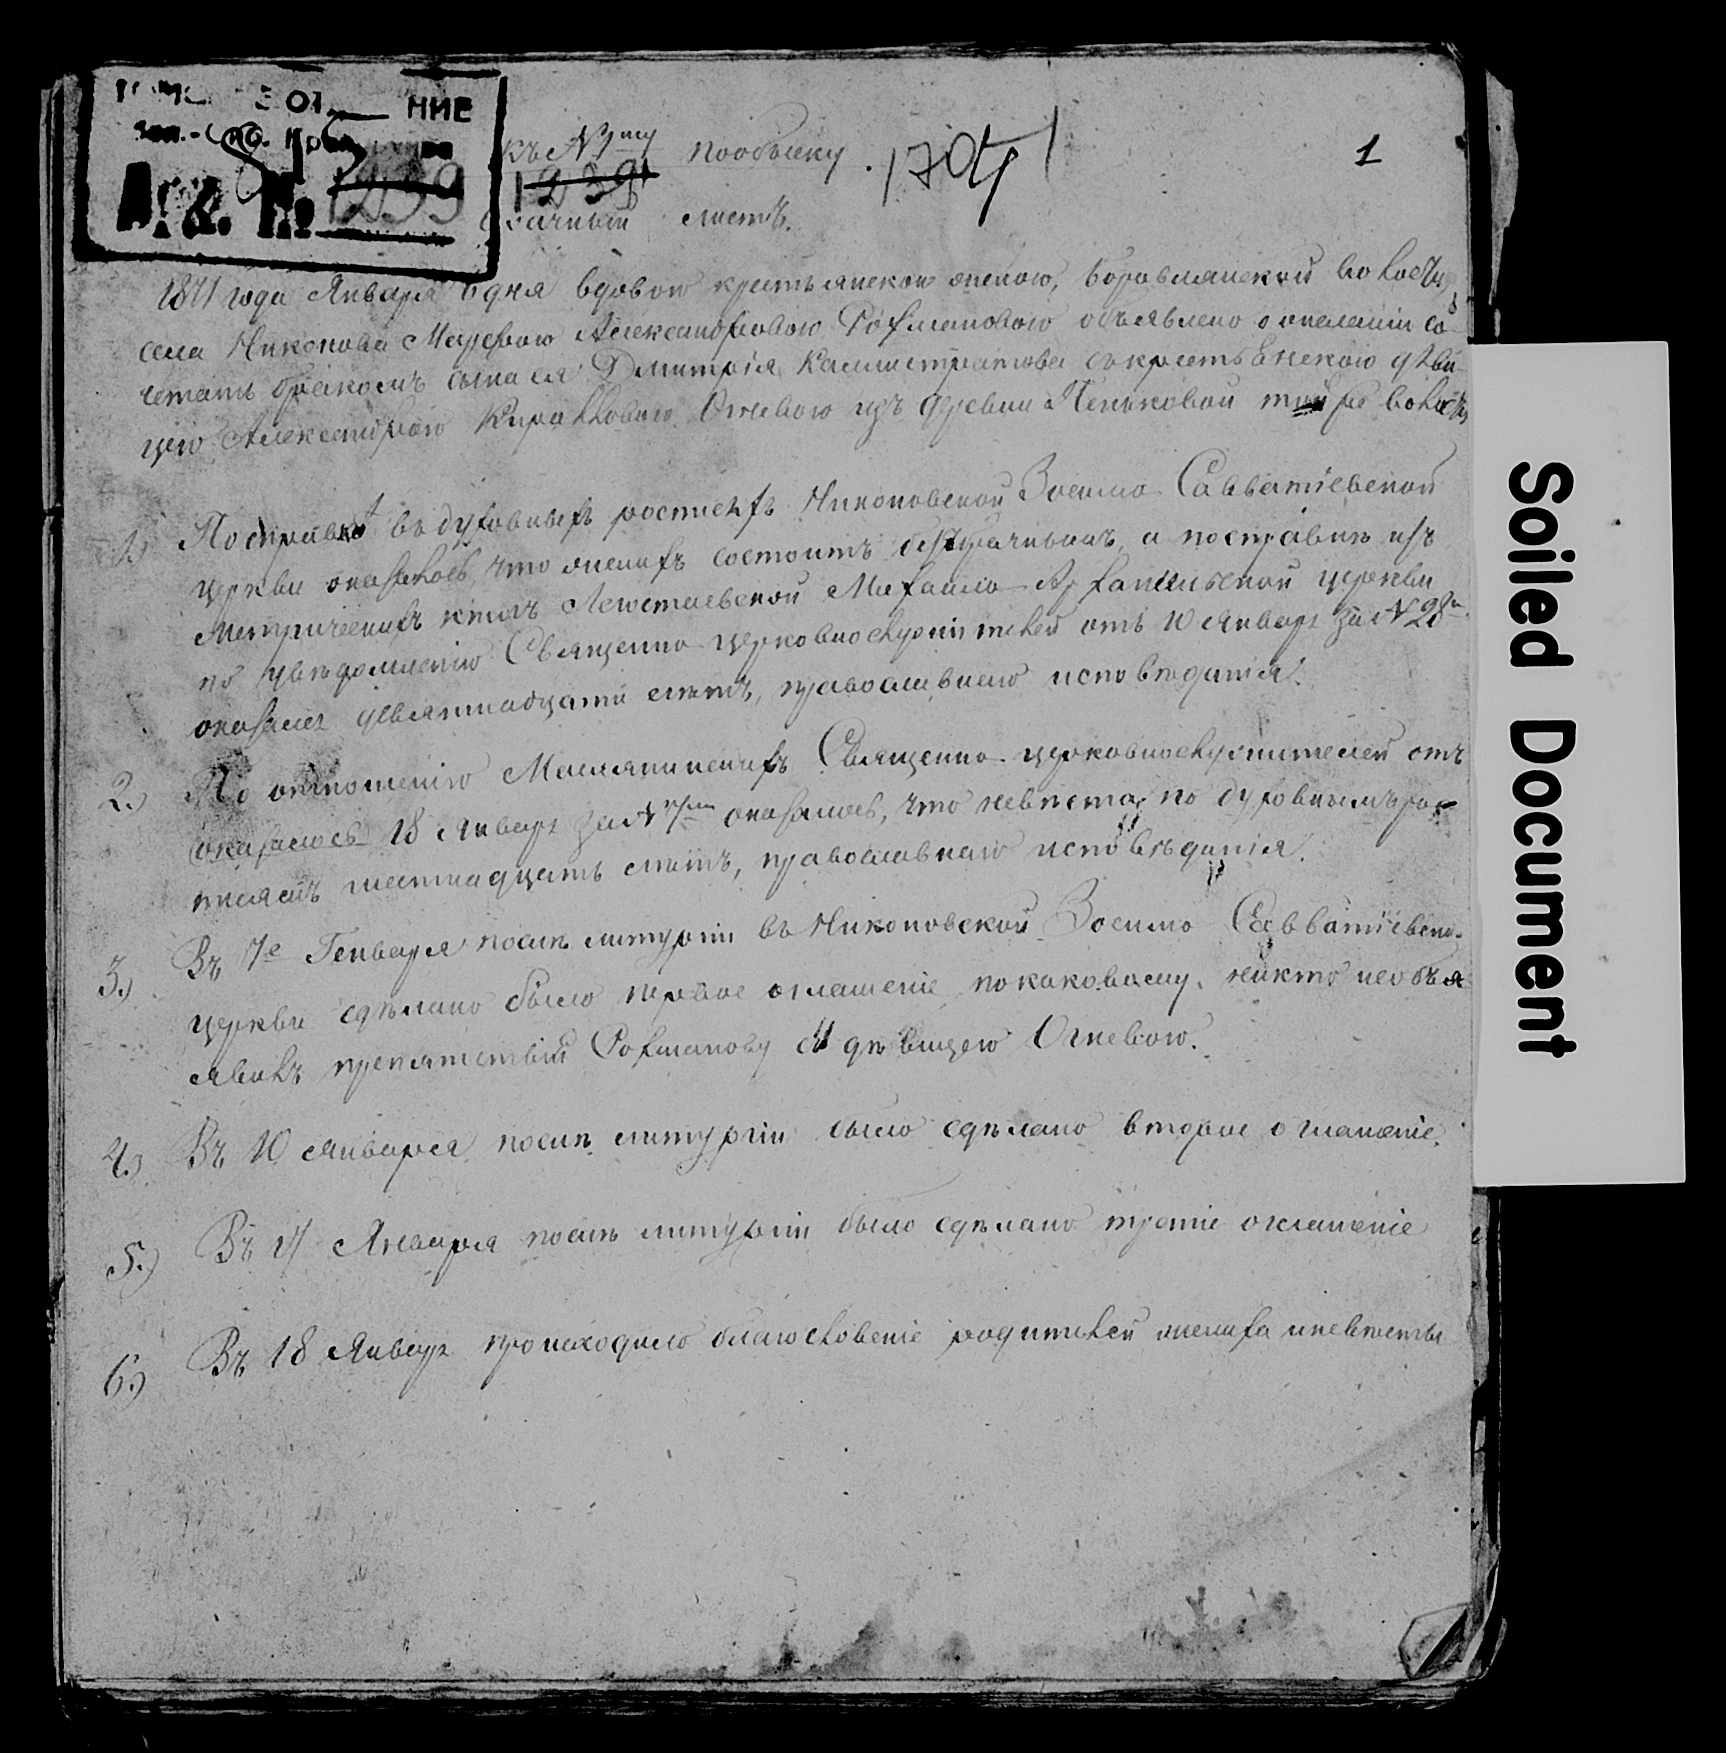 НИЕ
1239
къ №1му пообыску
1
1239
Брачный листъ.
1871 года Января 6 дня вдовою крестьянскою женою, Боровлянской волости,
села Никонова Марфою Александровою Рохмановою объявлено о желаніи со-
четать бракомъ сына ея Димитрія Каллистратова съ крестьянскою дѣви-
цею Александрою Кирилловою Огневою изъ деревни Пеньковой той же волости
1.) По справкѣ въ духовныхъ росписяхъ Никоновской Зосимо-Савватіевской
церкви оказалось, что женихъ состоитъ безбрачнымъ, а посправкѣ изъ
Метрическихъ книгъ Легостаевской Михаило-Архангельской церкви
по увѣдомленію Священно-церковнослужителей отъ 10 Января за №28м
оказался девятнадцати лѣтъ, православнаго исповѣданія.
2.) По отношенію Маслянинскихъ Священно-церковнослужителей отъ
18 Января за № оказалось, что невѣста, по духовнымъ рос-
писямъ шестнадцать лѣтъ, православнаго исповѣданія.
3.) Въ 7е Генваря послѣ литургіи въ Никоновской Зосимо Савватіевской
церкви сдѣлано было первое оглашеніе покаковому никто необъя-
явилъ препятствій Рохманову съ дѣвицею Огневою.
4.) Въ 10 Января послѣ литургіи было сдѣлано второе оглашеніе.
5.) Въ 17 Января послѣ литургіи было сдѣлано третіе оглашеніе
6.) Въ 18 Января происходило благословеніе родителей жениха иневѣсты
Soiled Document